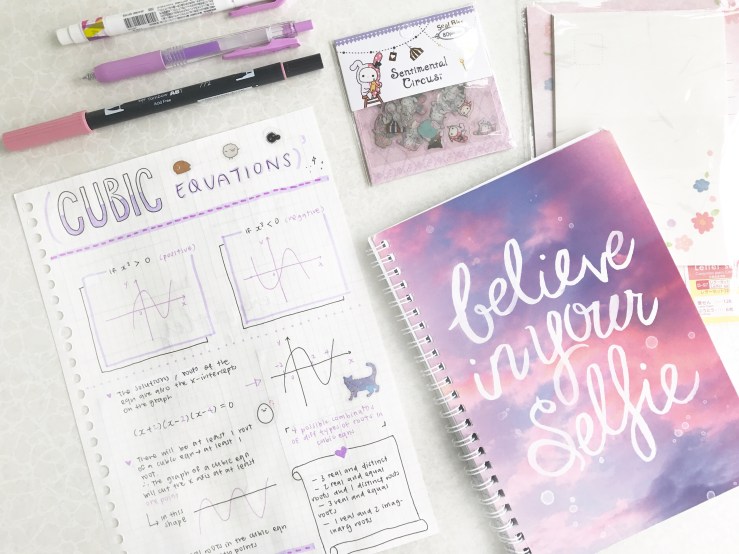 TOMBOW ABT
Acid Free
Sentimental
Circus
CUBIC EQUATIONS
if x³ > 0 (positive)
if x³ < 0 (negative)
y
x
y
x
The solutions / roots of the
eqn are also the x-intercepts
on the graph
(x+2)(x-2)(x-4) = 0
-2
y
x
There will be at least 1 root
to a cubic eqn
root.
∴ The graph of a cubic eqn
will cut the x axis at at least
one point
↳ in this
shape
roots in the cubic eqn
points
↳ possible combinatns
of diff types of roots in
cubic eqns
- 3 real and distinct
- 2 real and equal
roots and 1 distinct roots
- 3 real and equal
roots
- 1 real and 2 imag-
inary roots
believe
in your
Selfie